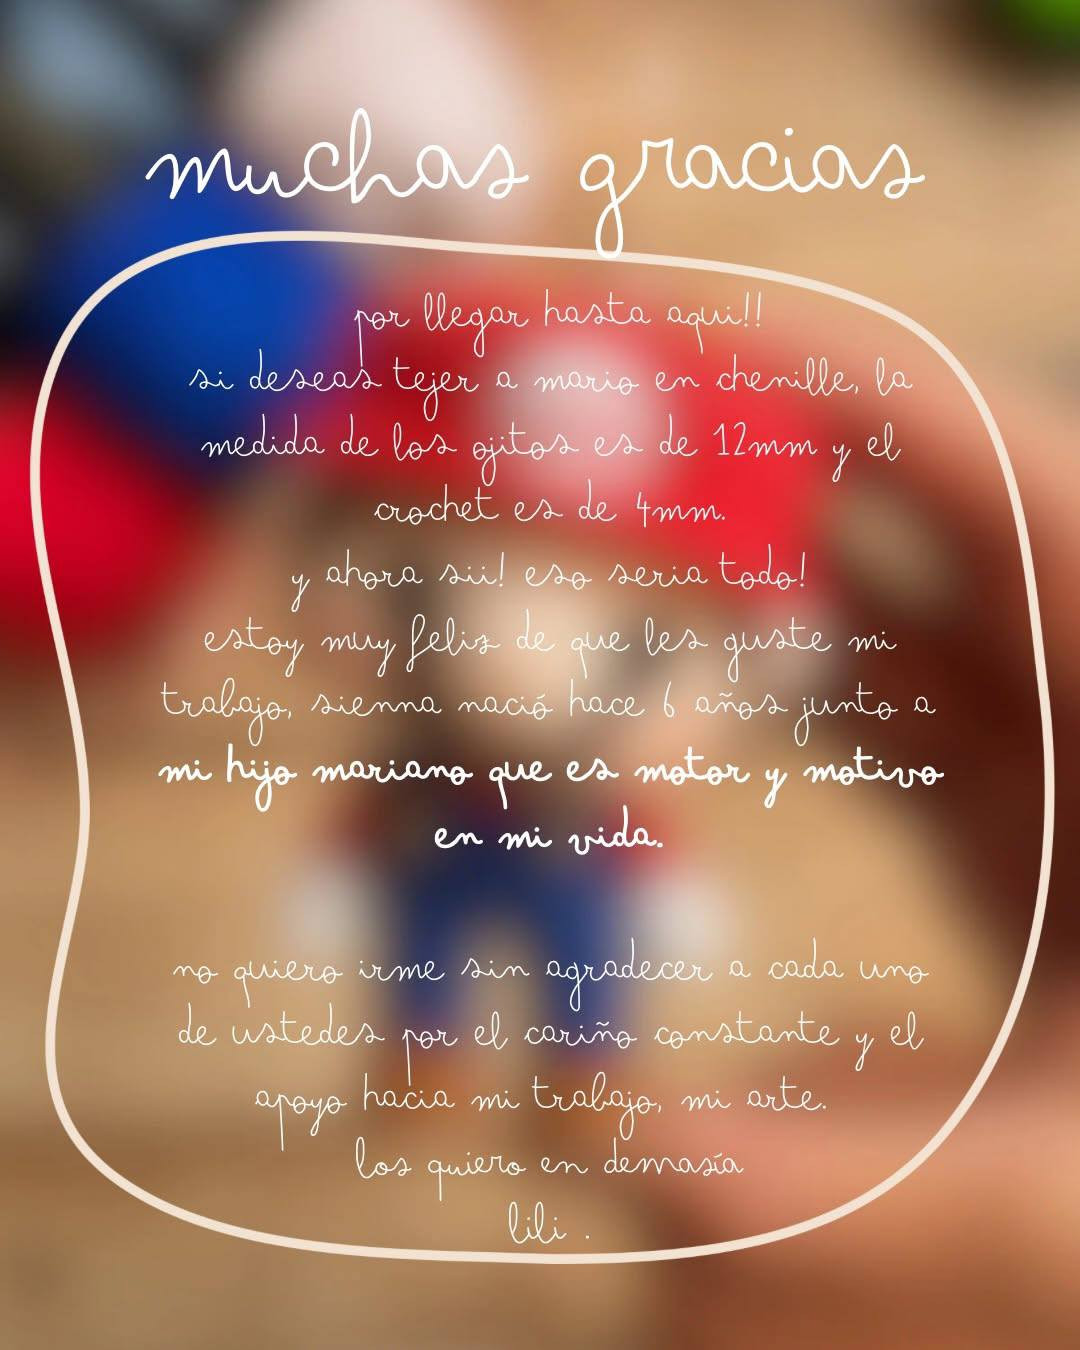 muchas gracias
por llegar hasta aqui!!
si deseas tejer a mario en chenille, la
medida de los ojitos es de 12mm y el
crochet es de 4mm.
y ahora sii! eso seria todo!
estoy muy feliz de que les guste mi
trabajo, sienna nació hace 6 años junto a
mi hijo mariano que es motor y motivo
en mi vida.
no quiero irme sin agradecer a cada uno
de ustedes por el cariño constante y el
apoyo hacia mi trabajo, mi arte.
los quiero en demasía
lili .